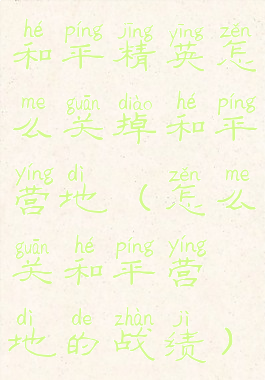 hé píng jīng yīng zěn
和平精英怎
me guān diào hé píng
么关掉和平
yíng dì zěn me
营地（怎么
guān hé píng yíng
关和平营
dì de zhàn jì
地的战绩）